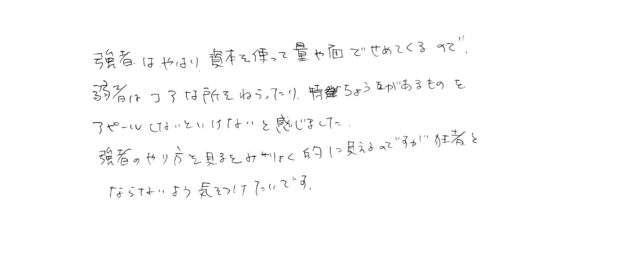 強者はやはり、資本を使って量や面でせめてくるので、
弱者はコアな所をねらったり、特ちょうがあるものを
アピールしないといけないと感じました。
強者のやり方を見るとみりょく的に見えるのですが狂者と
ならないよう気をつけたいです。